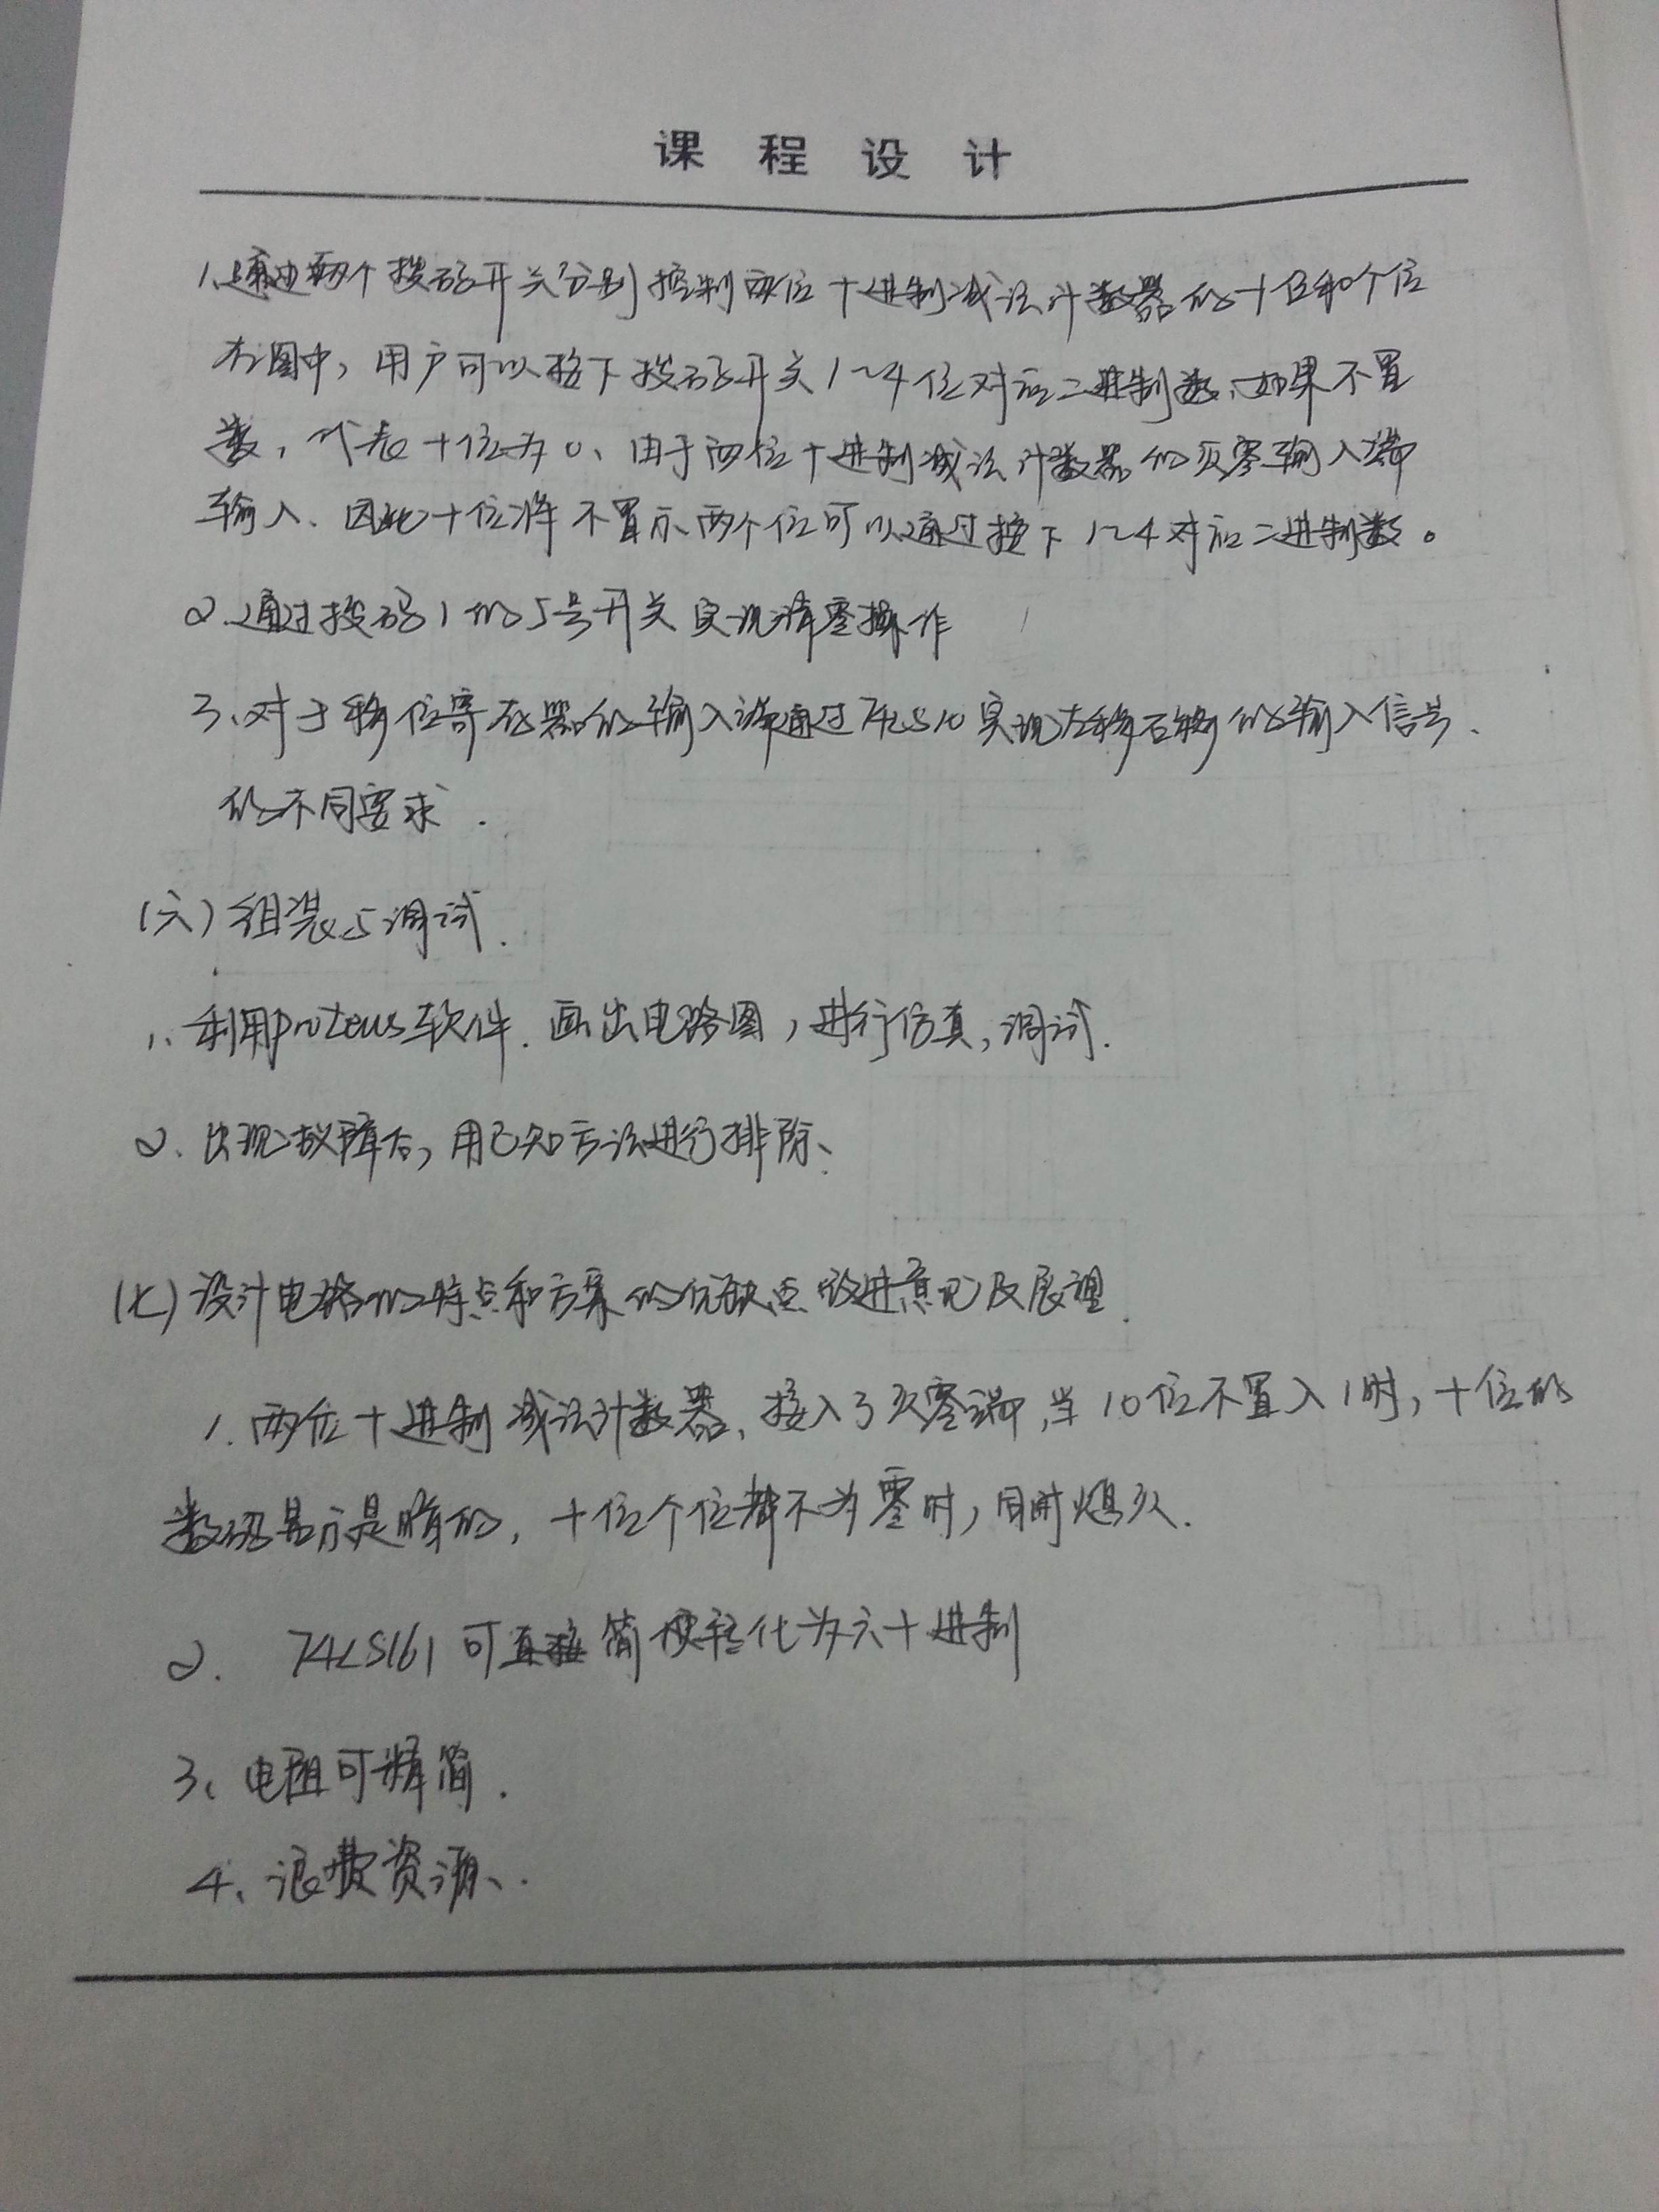 课程设计
1、通过两个拨码开关分别控制两位十进制减法计数器的十位和个位
在图中，用户可以按下拨码开关1~4位对应二进制数、如果不置
数，代表十位为0、由于两位十进制减法计数器的灭零输入端
输入、因此十位将不显示、两个位可以通过按下1~4对应二进制数。
2、通过拨码1的5号开关实现清零操作
3、对于移位寄存器的输入端通过74LS10实现左移右移的输入信号、
的不同要求.
(六)组装与调试.
1、利用proteus软件.画出电路图，进行仿真，调试.
2、出现故障后，用已知方法进行排除、
(七)设计电路的特点和方案的优缺点改进意见及展望.
1.两位十进制减法计数器、接入了灭零端，当10位不置入1时，十位的
数码显示是暗的，十位个位都不为零时，同时熄灭.
2. 74LS161可直接简便转化为六十进制
3、电阻可精简.
4、浪费资源、.